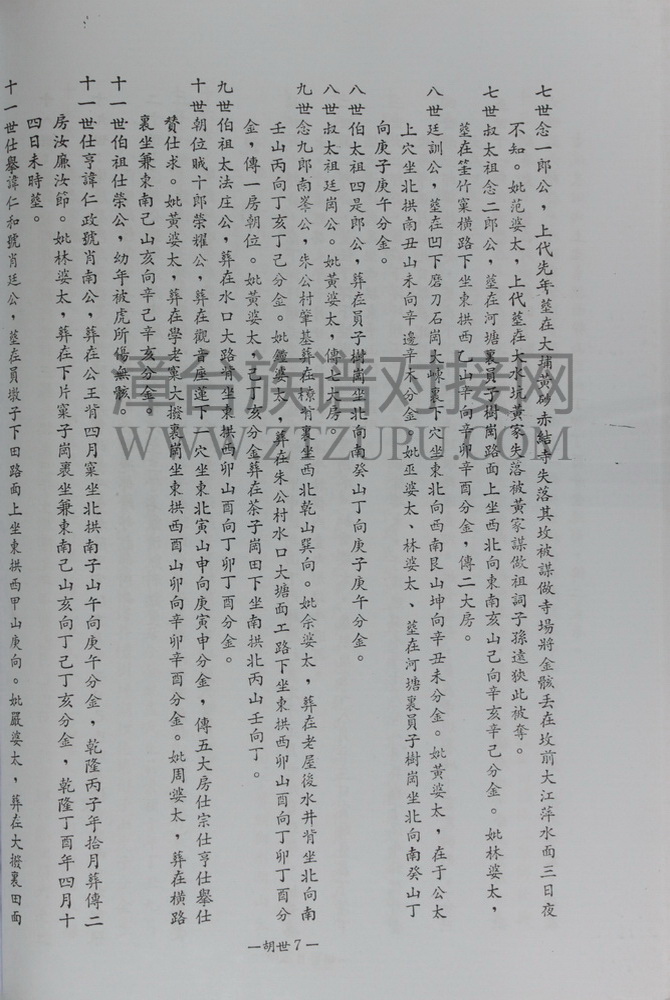 七世念一郎公，上代先年塟在大埔黃砂赤結寺失落其坟被謀做寺場將金骸丟在坟前大江萍水面三日夜
不知。妣范婆太，上代塟在大水坑黃家失落被黃家謀做祖詞子孫遠狹此被奪。
七世叔太祖念二郎公，塟在河塘裏員子樹崗路面上坐西北向東南亥山己向辛亥辛己分金。妣林婆太，
塟在筀竹窠橫路下坐東拱西乙山辛向辛卯辛酉分金，傳二大房。
八世廷訓公，塟在凹下磨刀石崗大崠裏下穴坐東北向西南艮山坤向辛丑未分金。妣黃婆太，在于公太
上穴坐北拱南丑山未向辛邊辛未分金。妣巫婆太、林婆太、塟在河塘裏員子樹崗坐北向南癸山丁
向庚子庚午分金。
八世伯太祖四是郎公，葬在員子樹崗坐北向南癸山丁向庚子庚午分金。
八世叔太祖廷崗公。妣黃婆太，傳七大房。
九世念九郎南峯公，朱公村肇基葬在樟背裏坐西北乾山巽向。妣佘婆太，葬在老屋後水井背坐北向南
壬山丙向丁亥丁己分金。妣鍾婆太，葬在朱公村水口大塘面工路下坐東拱西卯山酉向丁卯丁酉分
金，傳一房朝位。妣黃婆太己丁亥分金葬在茶子崗田下坐南拱北丙山壬向丁。
九世伯祖太法庄公，葬在水口大路背坐東拱西卯山酉向丁卯丁酉分金。
十世朝位賊十郎榮耀公，葬在觀音座蓮下一穴坐東北寅山申向庚寅申分金，傳五大房仕宗仕亨仕舉仕
贊仕求。妣黃婆太，葬在學老窠大撥裏崗坐東拱西酉山卯向辛卯辛酉分金。妣周婆太，葬在橫路
裏坐兼東南己山亥向辛己辛亥分金。
十一世伯祖仕崇公，幼年被虎所傷無骸。
十一世仕亨諱仁政號肖南公，葬在公王背四月窠坐北拱南子山午向庚午分金，乾隆丙子年拾月葬傳二
房汝廉汝節。妣林婆太，葬在下片窠子崗裏坐兼東南己山亥向丁己丁亥分金，乾隆丁酉年四月十
四日未時塟。
十一世仕舉諱仁和號肖廷公，塟在員墩子下田路面上坐東拱西甲山庚向。妣嚴婆太，葬在大撥裏田面
—胡世7—
章台族谱对接网
WWW.ZTZUPU.COM